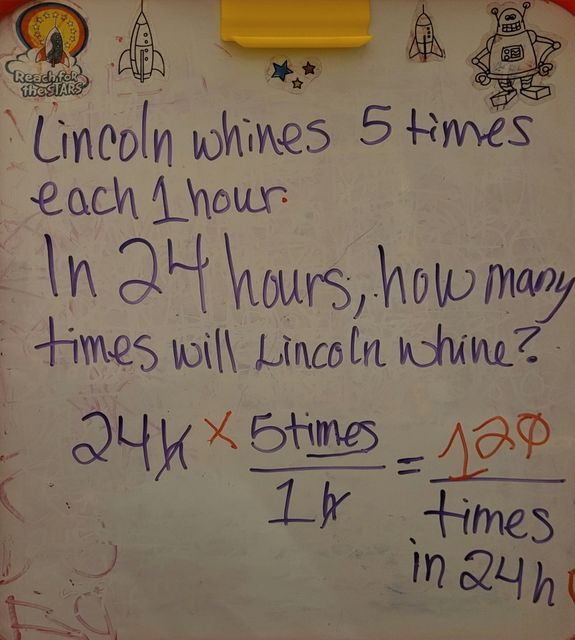 Reach for
the STARS
Lincoln whines 5 times
each 1 hour.
In 24 hours, how many
times will Lincoln whine?
24h × 5 times
1h
= 120
times
in 24h